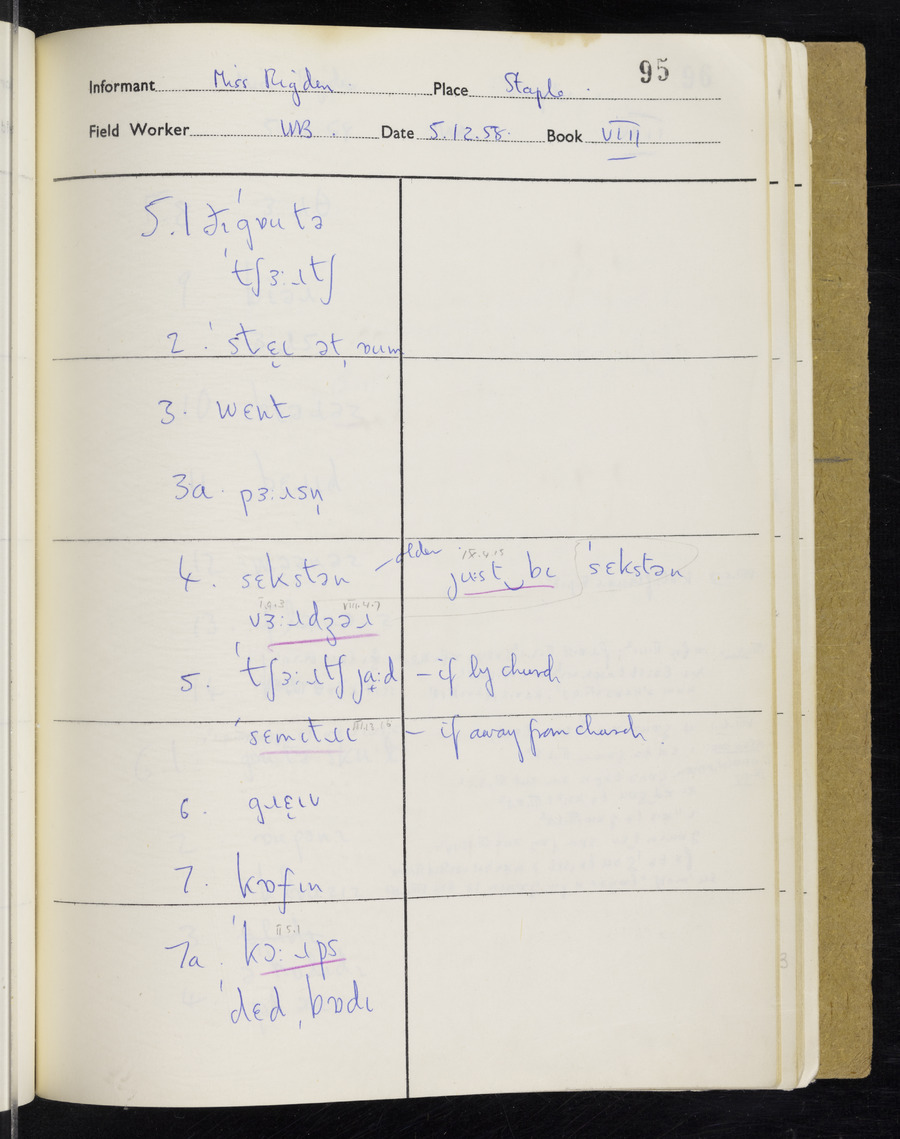 95
Informant Miss Rigden. Place Staple.
Field Worker WB. Date 5.12.58. Book VIII
5.1 ðɪˈgoʊ tə
ˈtʃɜ:ɹtʃ
2. ˈstɛ̞ɪ ətˌoʊm
3. wɛnt
3a. pɜ:ɹsn̩
4. sɛkstən – older
ju:st‿bɪ ˈsɛkstən
vɜ:ɹdʒəɹ VIII.4.7
5. ˈtʃɜ:ɹtʃja̟:d – if by church
ˈsɛmɪtɹɪ – if away from church.
6. gɹɛ̞ɪv
7. kɒfɪn
7a. ˈkɔ:ɹps II 5.1
ˈdɛdˌbɒdɪ
3